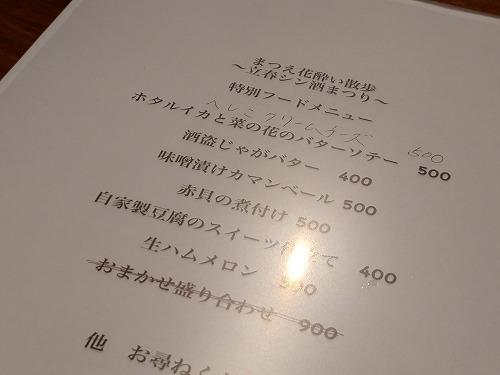 まつえ花酔い散歩
〜立春シン酒まつり〜
特別フードメニュー
へしこクリームチーズ 500
ホタルイカと菜の花のバターソテー 500
酒盗じゃがバター 400
味噌漬けカマンベール 500
赤貝の煮付け 500
自家製豆腐のスイーツ仕立て 400
生ハムメロン
おまかせ盛り合わせ 900
他 お尋ねく